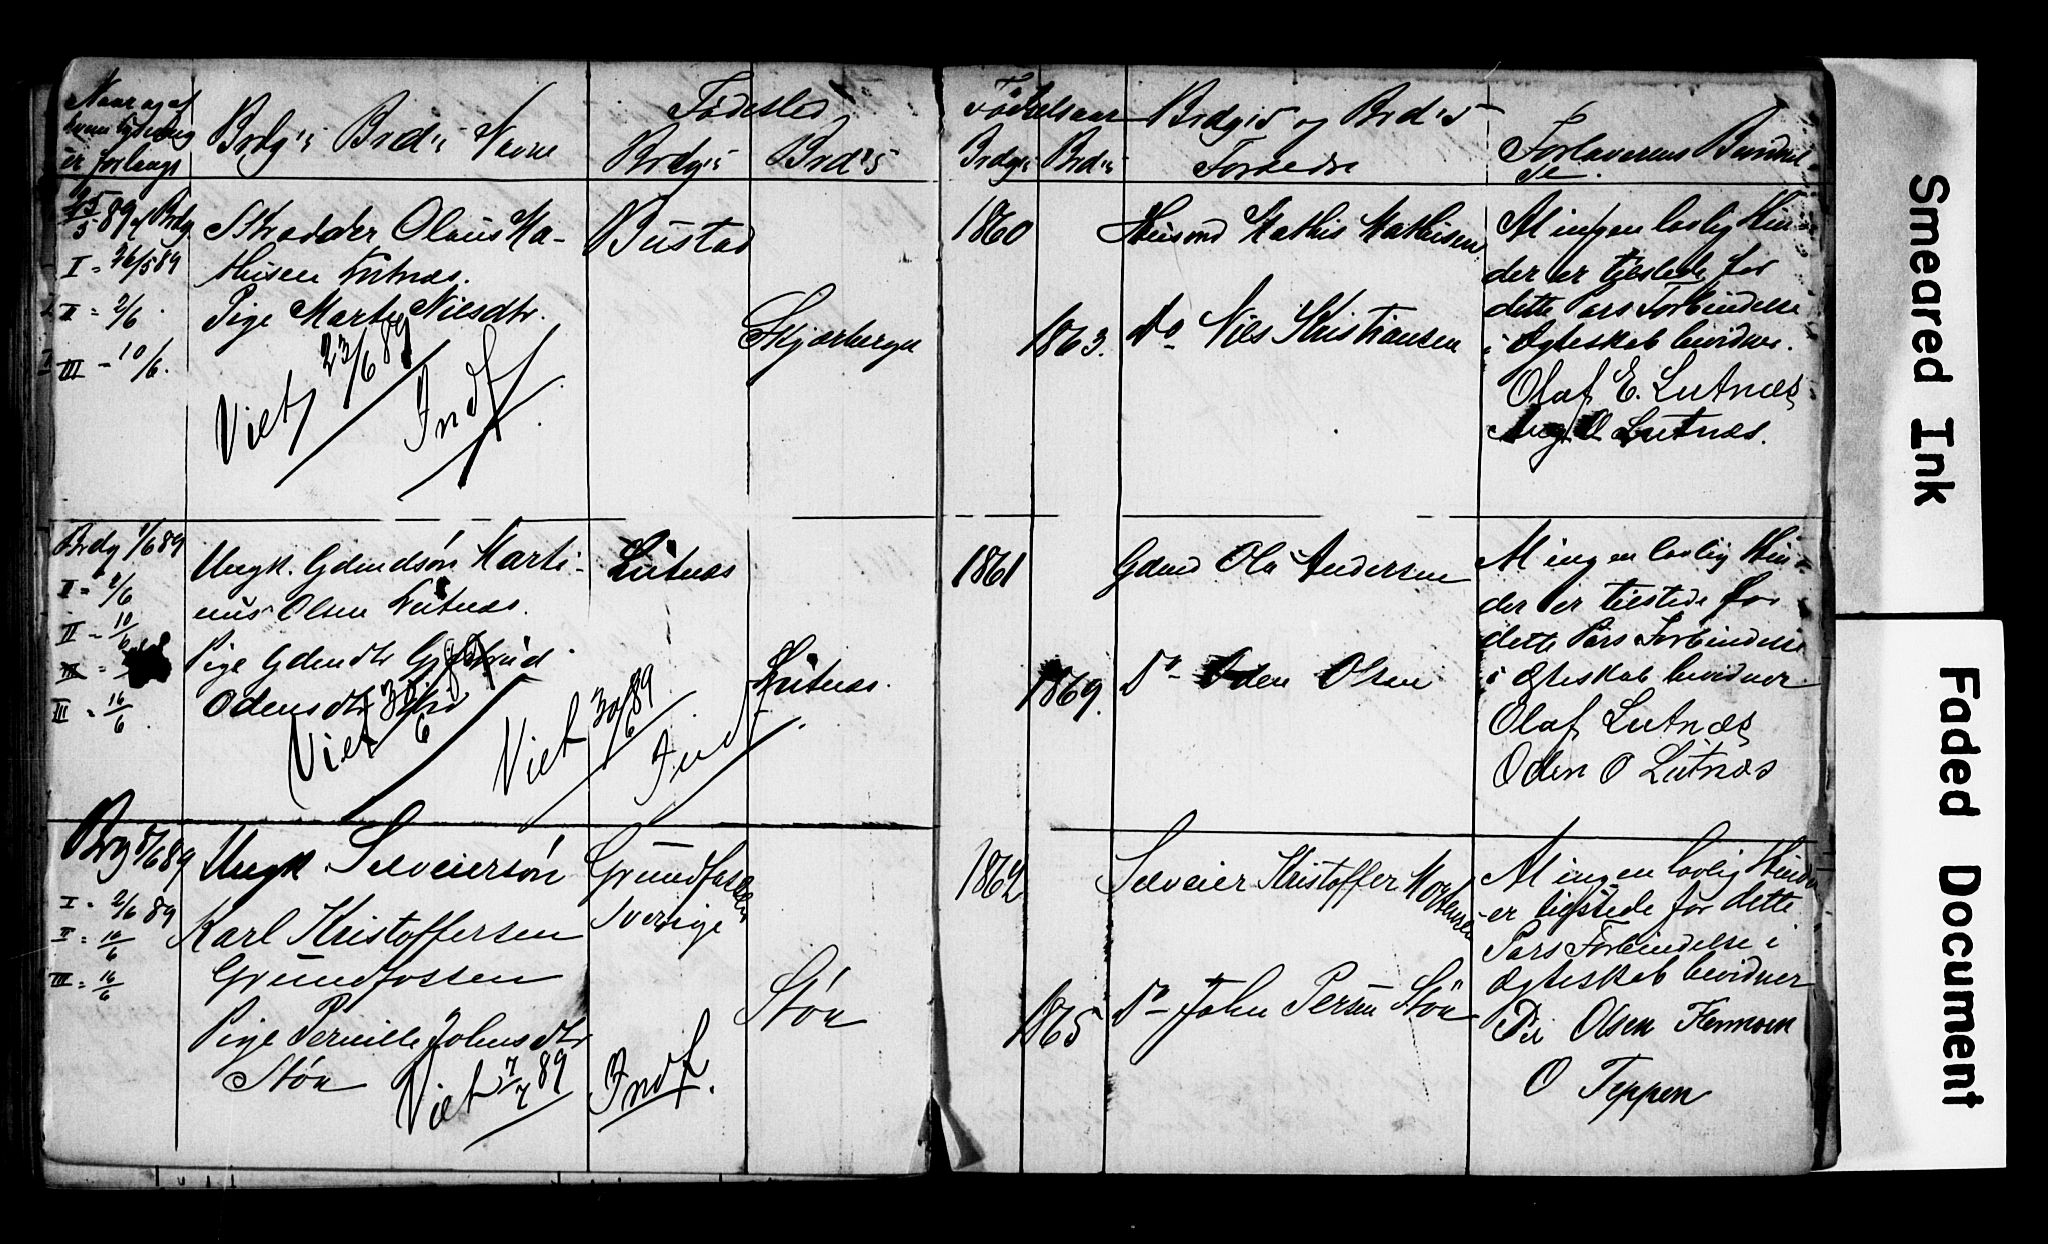 Naar og af
hvem Lysning
er forlangt
Brdg's Brd's Navne
Fødested
Brdg's
Brd's
Fødselsaar
Brdg's
Brd's
Brdg's og Brd's
Forældre
Forlovernes Bevidnel
se.
25/5 89 af Brdg
I = 26/5 89
II = 2/6
III - 10/6.
Skrædder Olaus Ma-
thisen Lutnæs.
Pige Marte Nilsdtr.
Viet 23/6 89
Indf
Bustad
Skjærbergen
1860
1863.
Husmd Mathis Mathisen
Do Nils Kristiansen
At ingen lovlig Hin-
der er tilstede for
dette Pars Forbindelse
i Ægteskab bevidner.
Olaf E. Lutnæs
Aug. O Lutnæs.
Brdg 1/6 89
I = 2/6
II = 10/6
III =
III = 16/6.
Ungk. Gdmdsøn Marti-
nus Olsen Lutnæs.
Pige Gdmdtr Gjertrud
Odensdtr
Viet 30/6 89
Viet 30/6 89
Indf
Lutnæs
Lutnæs.
1861
1869.
Gdmd Ola Andersen
Do Oden Olsen
At ingen lovlig Hin-
der er tilstede for
dette Pars Forbindelse
i Ægteskab bevidner
Olaf Lutnæs
Oden O Lutnæs
Brg 8/6 89
I = 2/6 89
II = 10/6
III = 16/6
Ungk Selveiersøn
Karl Kristoffersen
Grundfossen
Pige Pernille Johnsdtr
Støn
Viet 7/7 89
Indf.
Grundfossen
Sverige
Støn
1862
1865
Selveier Kristoffer Mortensen
Do John Persen Støn
At ingen lovlig Hinder
er tilstede for dette
Pars Forbindelse i
Ægteskab bevidner
Per Olsen Flermoen
O Teppen
Smeared Ink
Faded Document